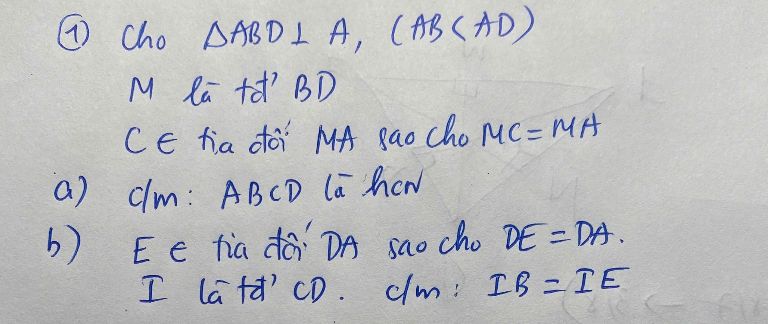 ① Cho ΔABD ⊥ A, (AB < AD)
M là tđ' BD
C ∈ tia đối MA sao cho MC = MA
a) c/m: ABCD là hcn
b) E ∈ tia đối DA sao cho DE = DA.
I là tđ' CD. c/m: IB = IE